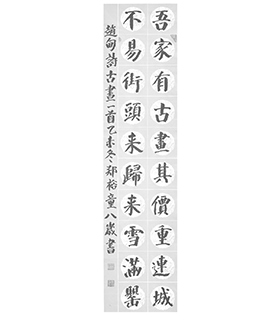 吾家有古畫其價重連城
不易街頭来歸来雪滿罌
趙甸詩古畫一首乙未冬郑裕童八歲書